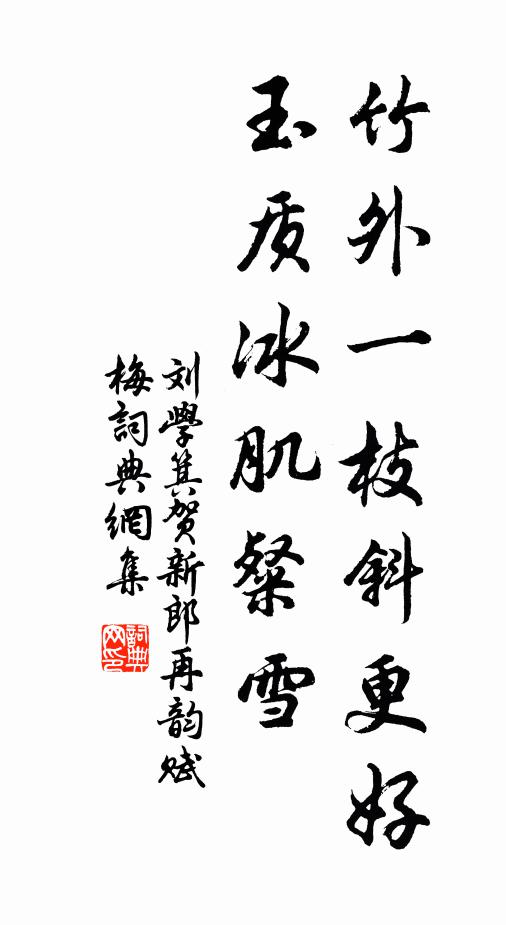 竹外一枝斜更好
玉质冰肌粲雪
刘學箕贺新郎再韵赋
梅詞典網集
詞典网印